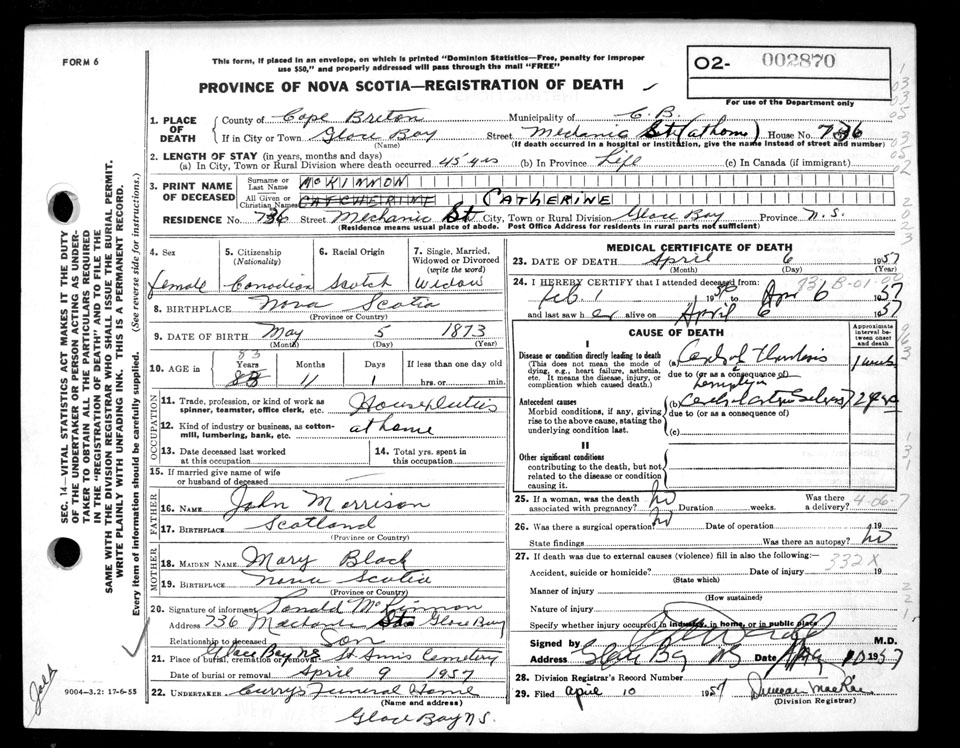 FORM 6
This form, if placed in an envelope, on which is printed "Dominion Statistics—Free, penalty for improper
use $50," and properly addressed will pass through the mail "FREE"
PROVINCE OF NOVA SCOTIA—REGISTRATION OF DEATH
O2- 002870
For use of the Department only
1. PLACE OF DEATH
County of Cape Breton Municipality of C. B.
If in City or Town Glace Bay Street Mechanic St (at home) House No. 736
(Name) (If death occurred in a hospital or institution, give the name instead of street and number)
2. LENGTH OF STAY (in years, months and days)
(a) In City, Town or Rural Division where death occurred 45 yrs (b) In Province Life (c) In Canada (if immigrant)
3. PRINT NAME OF DECEASED
Surname or Last Name McKINNON
All Given or Christian Names CATHERINE CATHERINE
RESIDENCE No. 736 Street Mechanic St City, Town or Rural Division Glace Bay Province N.S.
(Residence means usual place of abode. Post Office Address for residents in rural parts not sufficient)
4. Sex 5. Citizenship (Nationality) 6. Racial Origin 7. Single, Married, Widowed or Divorced (write the word)
female Canadian Scotch Widow
8. BIRTHPLACE Nova Scotia
(Province or Country)
9. DATE OF BIRTH May 5 1873
(Month) (Day) (Year)
83
10. AGE in Years Months Days If less than one day old
83 11 1 hrs. or min.
OCCUPATION
11. Trade, profession, or kind of work as spinner, teamster, office clerk, etc. Houseduties
12. Kind of industry or business, as cotton-mill, lumbering, bank, etc. at home
13. Date deceased last worked at this occupation 14. Total yrs. spent in this occupation
15. If married give name of wife or husband of deceased
FATHER
16. NAME John Morrison
17. BIRTHPLACE Scotland
(Province or Country)
MOTHER
18. MAIDEN NAME Mary Black
19. BIRTHPLACE Nova Scotia
(Province or Country)
20. Signature of informant Ronald McKinnon
Address 736 Mechanic St Glace Bay
Relationship to deceased Son
21. Place of burial, cremation or removal Glace Bay NS St Anns Cemetery
Date of burial or removal April 9 1957
22. UNDERTAKER Curry's Funeral Home
(Name and address)
Glace Bay N.S.
MEDICAL CERTIFICATE OF DEATH
23. DATE OF DEATH April 6 1957
(Month) (Day) (Year)
24. I HEREBY CERTIFY that I attended deceased from:
Feb. 1 19 to Apr 6 1957
and last saw her alive on April 6 1957
CAUSE OF DEATH
Approximate interval between onset and death
I
Disease or condition directly leading to death (a) Cerebral Thrombosis 1 week
(This does not mean the mode of dying, e.g., heart failure, asthenia, etc. It means the disease, injury, or complication which caused death.)
due to (or as a consequence of)
Antecedent causes (b) Cerebral
Morbid conditions, if any, giving rise to the above cause, stating the underlying condition last.
due to (or as a consequence of)
(c)
II
Other significant conditions
contributing to the death, but not related to the disease or condition causing it.
25. If a woman, was the death associated with pregnancy? No Duration weeks. Was there a delivery? 4-06-7
26. Was there a surgical operation? No Date of operation 19
State findings Was there an autopsy? No
27. If death was due to external causes (violence) fill in also the following:—
332X
Accident, suicide or homicide? Date of injury 19
(State which)
Manner of injury
(How sustained)
Nature of injury
Specify whether injury occurred in industry, in home, or in public place
Signed by M.D.
Address Glace Bay NS Date 10 1957
28. Division Registrar's Record Number
29. Filed April 10 1957 Duncan MacRae
(Division Registrar)
SEC. 14—VITAL STATISTICS ACT MAKES IT THE DUTY
OF THE UNDERTAKER OR PERSON ACTING AS UNDER-
TAKER TO OBTAIN ALL THE PARTICULARS REQUIRED
IN THE "REGISTRATION OF DEATH" AND TO FILE THE
SAME WITH THE DIVISION REGISTRAR WHO SHALL ISSUE THE BURIAL PERMIT.
WRITE PLAINLY WITH UNFADING INK. THIS IS A PERMANENT RECORD.
Every item of information should be carefully supplied. (See reverse side for instructions.)
9004-3.2: 17-6-55